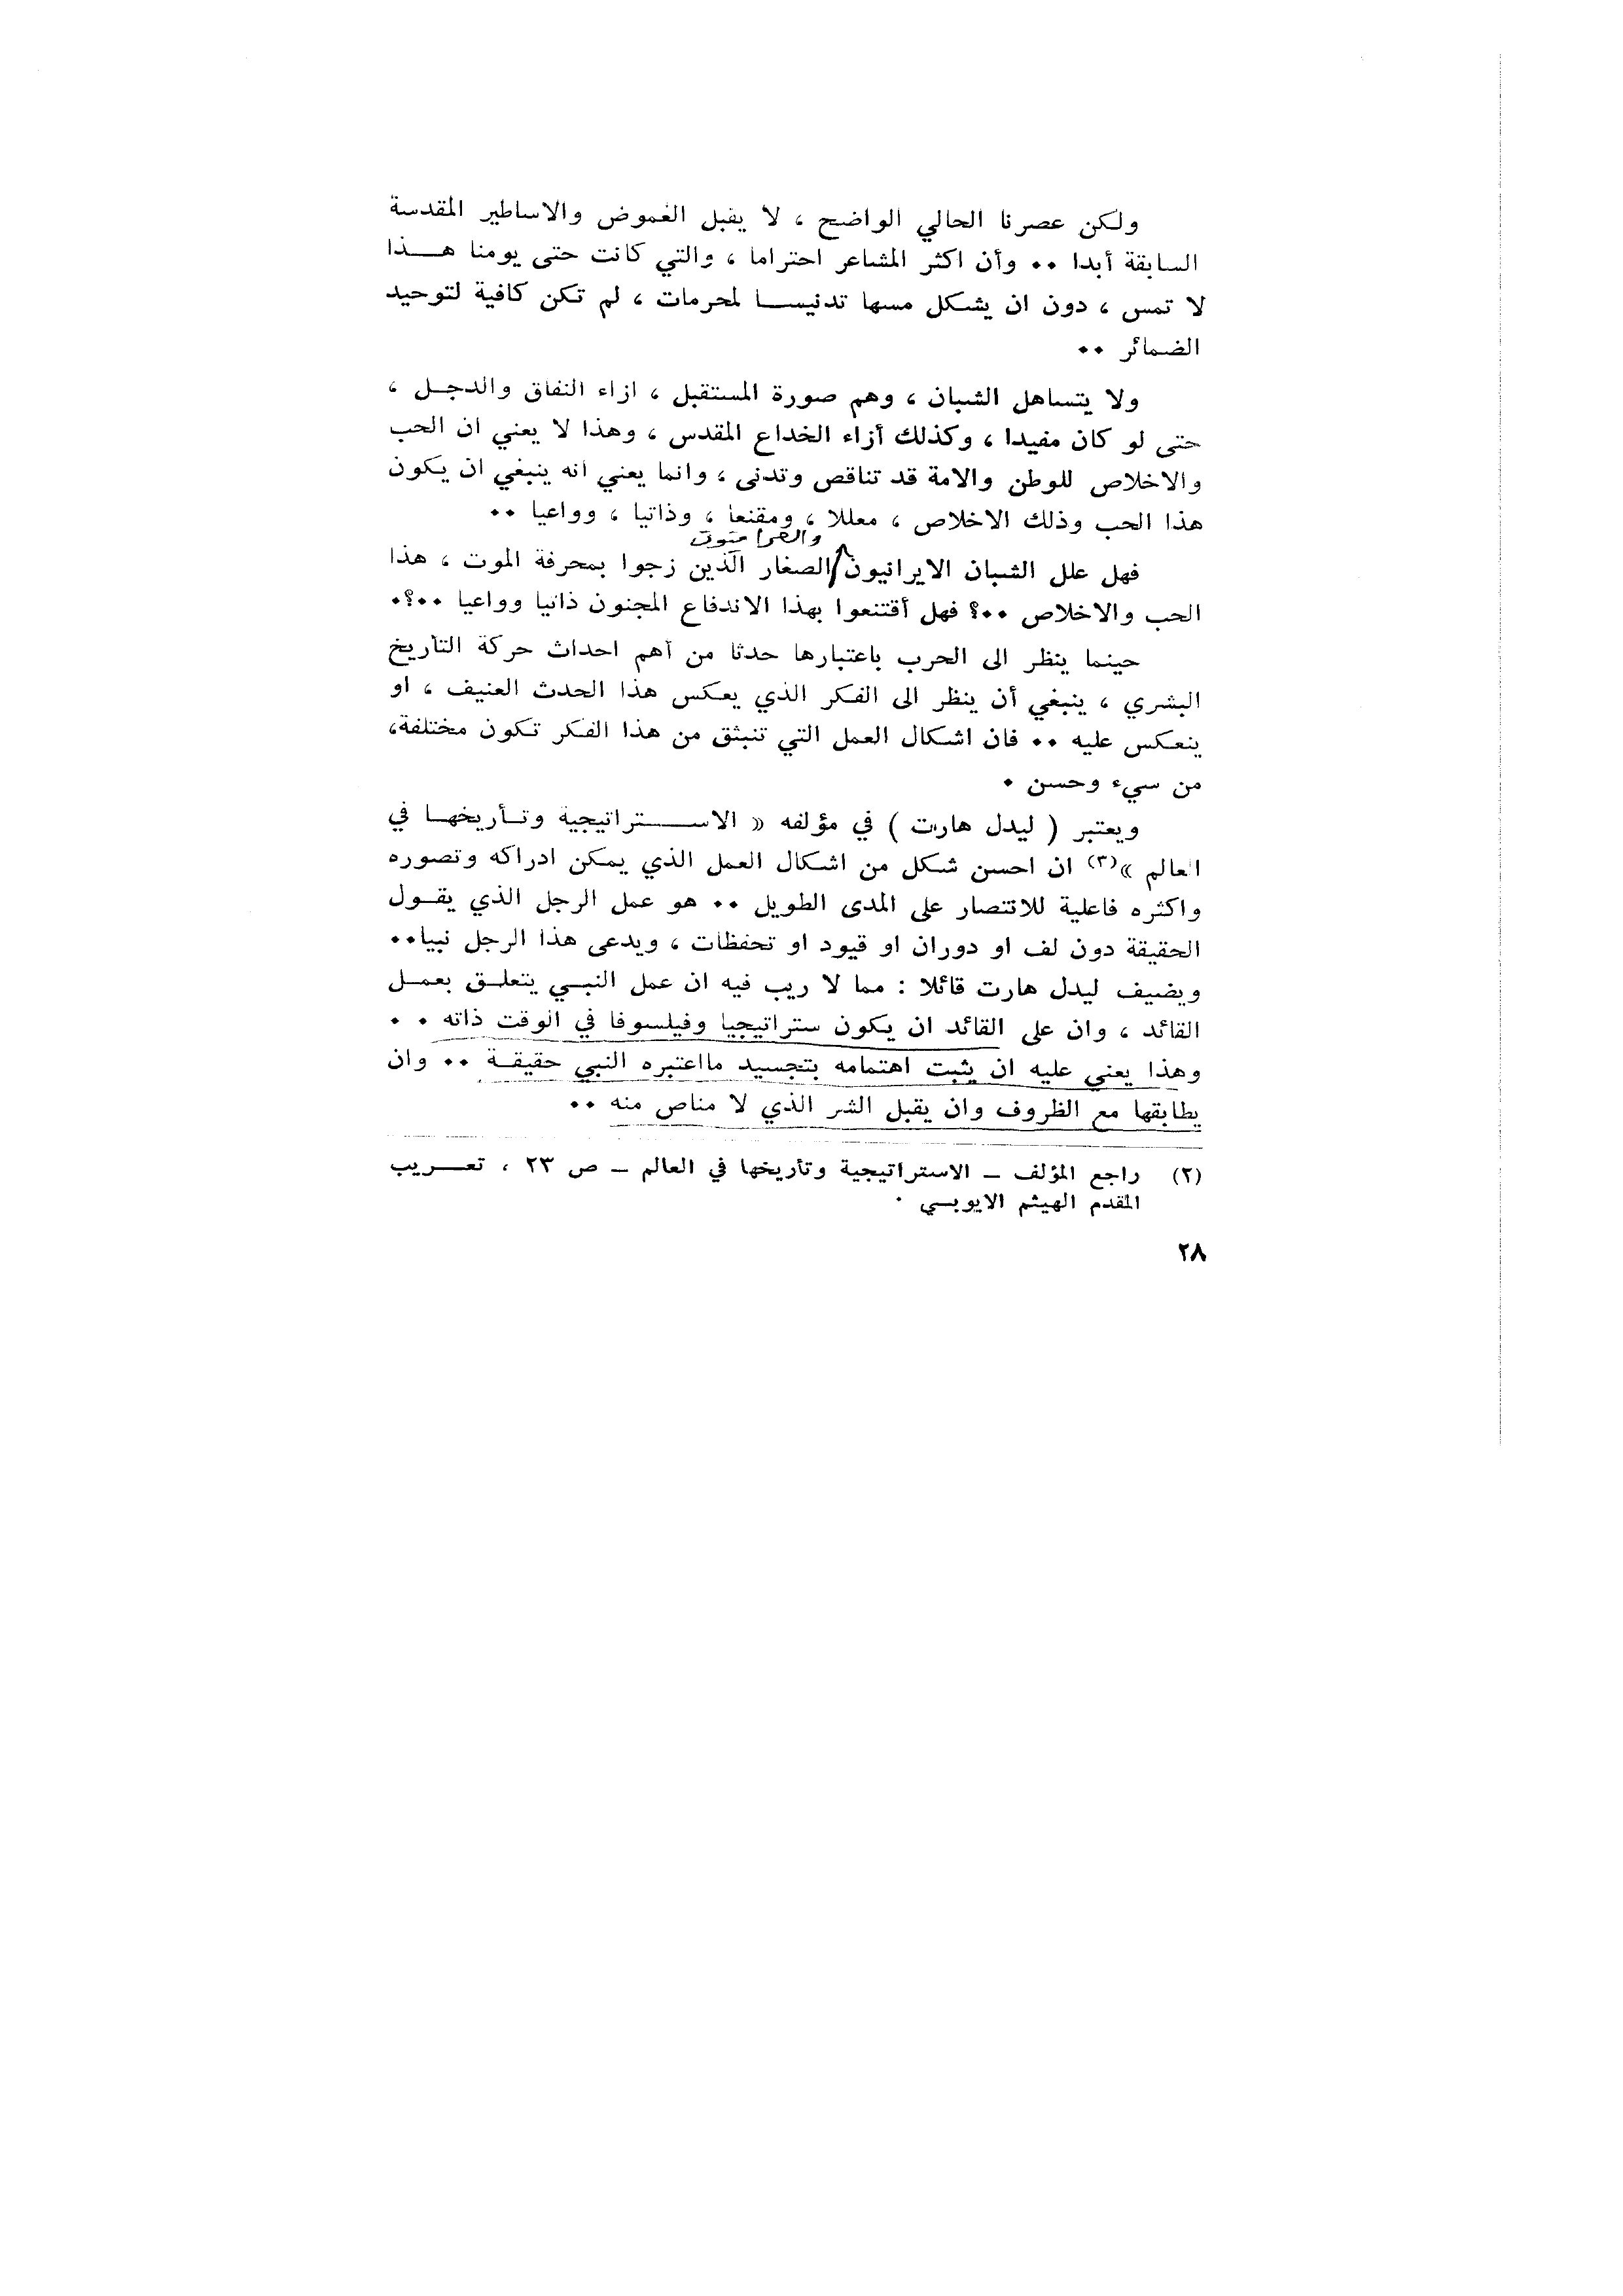 ولكن عصرنا الحالي الواضح ، لا يقبل الغموض والاساطير المقدسة
السابقة أبدا ٠٠ وأن اكثر المشاعر احتراما ، والتي كانت حتى يومنا هـــذا
لا تمس ، دون ان يشكل مسها تدنيســا لمحرمات ، لم تكن كافية لتوحيد
الضمائر ٠٠
ولا يتساهل الشبان ، وهم صورة المستقبل ، ازاء النفاق والدجـل ،
حتى لو كان مفيدا ، وكذلك أزاء الخداع المقدس ، وهذا لا يعني ان الحب
والاخلاص للوطن والامة قد تناقص وتدنى ، وانما يعني انه ينبغي ان يكون
هذا الحب وذلك الاخلاص ، معللا ، ومقنعا ، وذاتيا ، وواعيا ٠٠
فهل علل الشبان الايرانيون الصغار الذين زجوا بمحرقة الموت ، هذا
الحب والاخلاص ٠٠؟ فهل أقتنعوا بهذا الاندفاع المجنون ذاتيا وواعيا ٠٠؟٠
حينما ينظر الى الحرب باعتبارها حدثا من أهم احداث حركة التأريخ
البشري ، ينبغي أن ينظر الى الفكر الذي يعكس هذا الحدث العنيف ، او
ينعكس عليه ٠٠ فان اشكال العمل التي تنبثق من هذا الفكر تكون مختلفة،
من سيء وحسن ٠
ويعتبر ( ليدل هارت ) في مؤلفه « الاســـتراتيجية وتـأريخهـا في
العالم »(٣) ان احسن شكل من اشكال العمل الذي يمكن ادراكه وتصوره
واكثره فاعلية للانتصار على المدى الطويل ٠٠ هو عمل الرجل الذي يقـول
الحقيقة دون لف او دوران او قيود او تحفظات ، ويدعى هذا الرجل نبيا٠٠
ويضيف ليدل هارت قائلا : مما لا ريب فيه ان عمل النبـي يتعلـق بعمـل
القائد ، وان على القائد ان يكون ستراتيجيا وفيلسوفا في الوقت ذاته ٠ ٠
وهذا يعني عليه ان يثبت اهتمامه بتجسيد مااعتبره النبي حقيقـة ٠٠ وان
يطابقها مع الظروف وان يقبل الشر الذي لا مناص منه ٠٠
(٢) راجع المؤلف ـ الاستراتيجية وتأريخها في العالم ـ ص ٢٣ ، تعـــريب
المقدم الهيثم الايوبـي ٠
٢٨